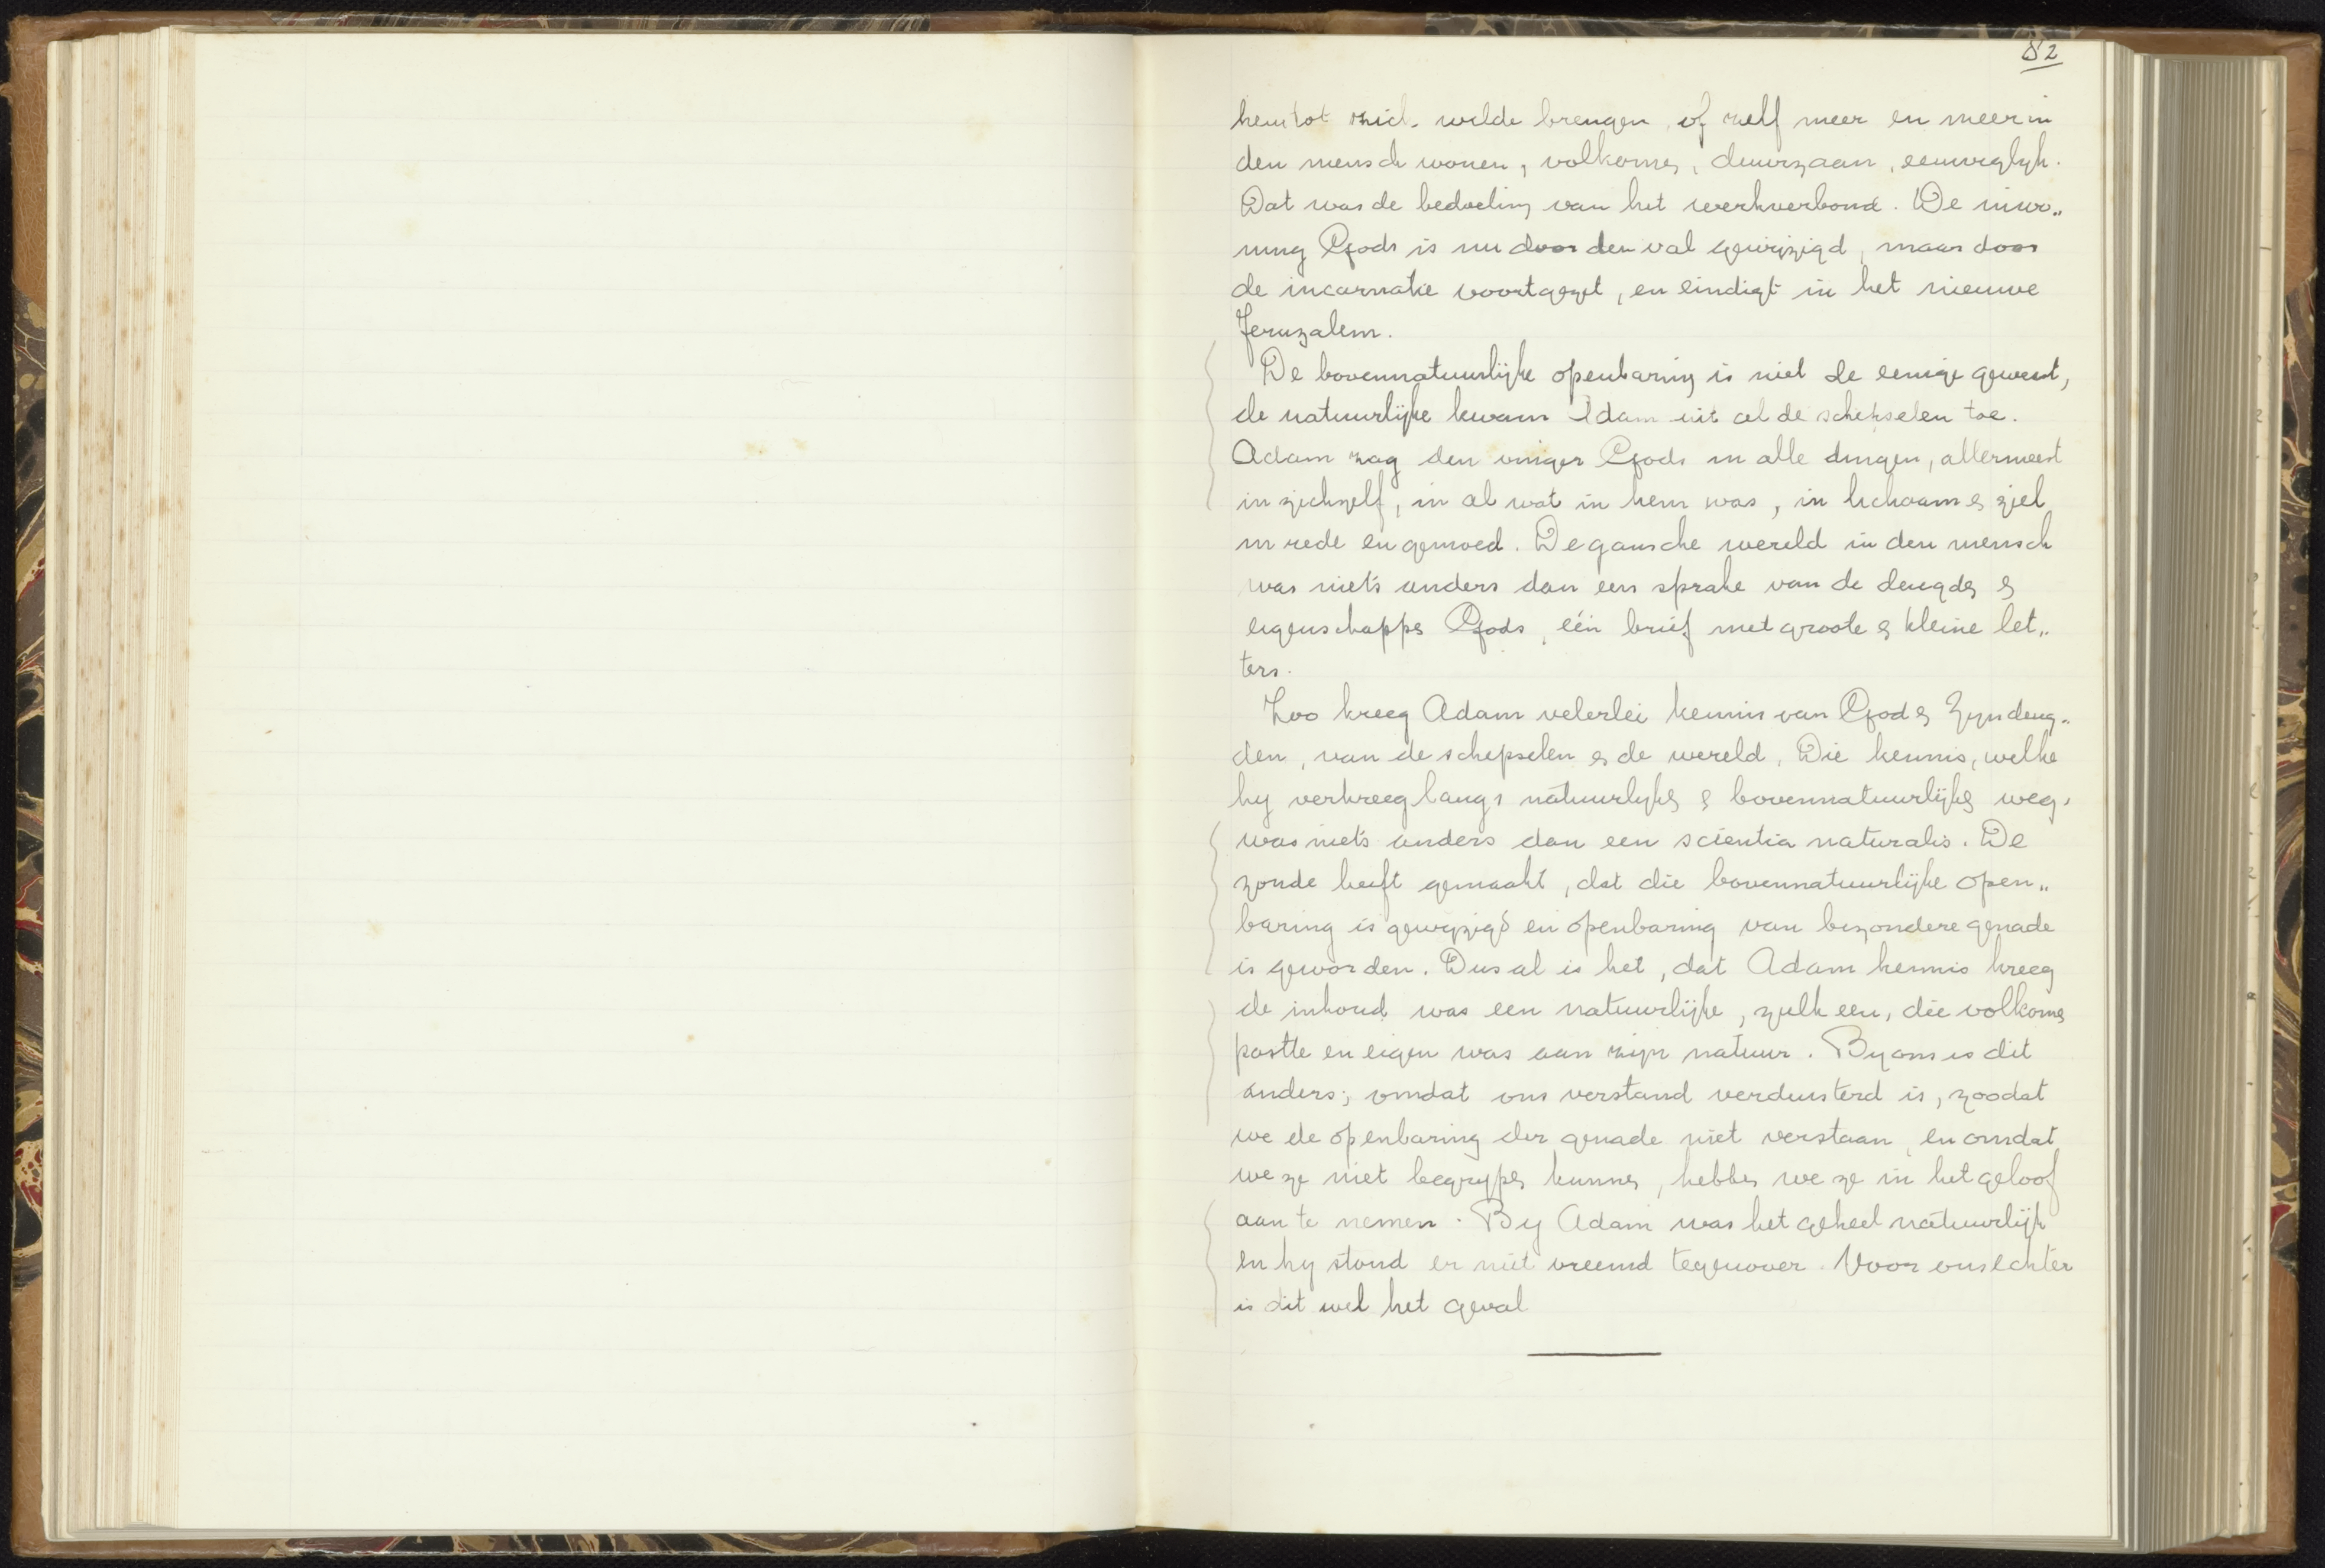 82
hem tot zich wilde brengen, of zelf meer en meer in
den mensch wonen, volkomen, duurzaam, eeuwiglyk.
Dat was de bedoeling van het werkverbond. De inwo„
ning Gods is nu door den val gewijzigd, maar door
de incarnatie voortgezet, en eindigt in het nieuwe
Jeruzalem.
De bovennatuurlijke openbaring is niet de eenige geweest,
de natuurlijke kwam Adam uit al de schepselen toe.
Adam zag den vinger Gods in alle dingen, allermeest
in zichzelf, in al wat in hem was, in lichaam en ziel
in rede en gemoed. De gansche wereld in den mensch
was niets anders dan een sprake van de deugden en
eigenschappen Gods, één brief met groote en kleine let„
ters.
Zoo kreeg Adam velerlei kennis van God en Zyn deug„
den, van de schepselen en de wereld. Die kennis, welke
hy verkreeg langs natuurlyken en bovennatuurlijken weg,
was niets anders dan een scientia naturalis. De
zonde heeft gemaakt, dat die bovennatuurlijke open„
baring is gewyzigd en openbaring van bezondere genade
is geworden. Dus al is het, dat Adam kennis kreeg
de inhoud was een natuurlijke, zulk een, die volkomen
pastte en eigen was aan zijn natuur. By ons is dit
anders; omdat ons verstand verduisterd is, zoodat
we de openbaring der genade niet verstaan, en omdat
we ze niet begrypen kunnen, hebben we ze in het geloof
aan te nemen. By Adam was het geheel natuurlijk
en hy stond er niet vreemd tegenover. Voor ons echter
is dit wel het geval